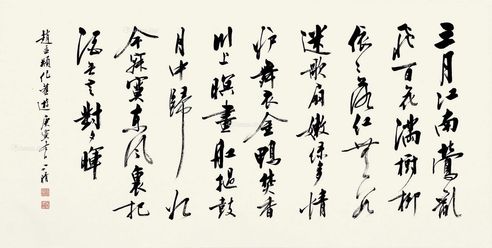 三月江南鶯亂
飛百花滿樹柳
依々落紅無數
迷歌扇嫩綠多情
妒舞衣金鴨焚香
川上暝畫舡撾鼓
月中歸如
今寂寞東風裏把
酒無言對夕暉
趙孟頫紀舊遊庚寅